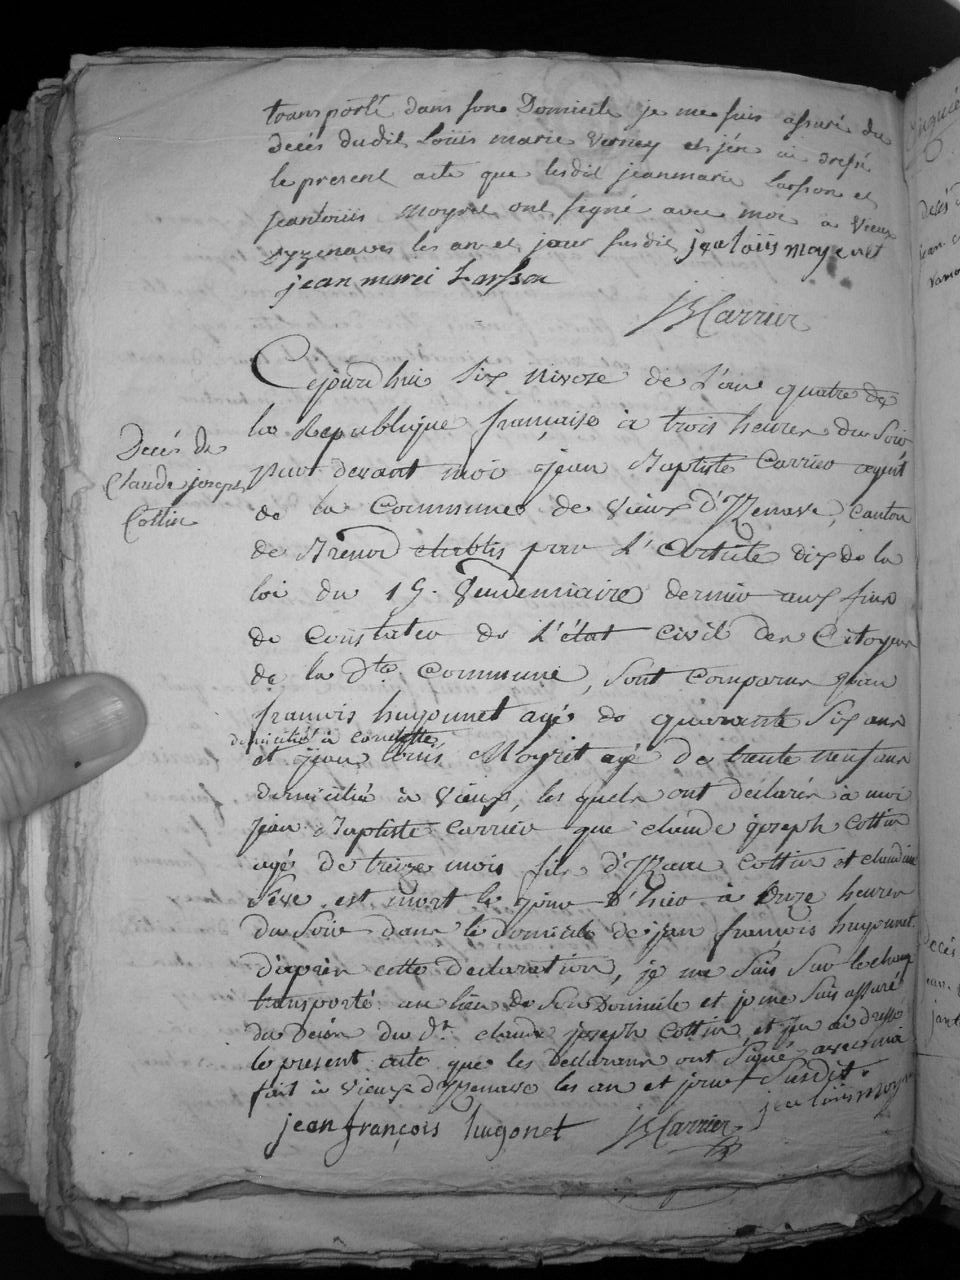 transporté dans son Domicile je me suis assuré du
décés dudit Loüis marie Verney et j'én ai dressé
le present acte que lesdit jeanmarie Larsson et
jeanloüis Moyret ont signé avec moi à Vieux
Dyzenaves les an et jour susdit jea loüis moyeret
jean marei Larsson
JBCarrier
Cejourd'hui six nivose de L'an quatre de
la Republique française à trois heures du Soir
Decés de
Claude joseph
Cottin
Par devant moi jean Baptiste Carrier agent
de la Commune de Vieux d'Izenave, canton
de Brenod etablis par L'Article dix de la
loi du 19. Vendemiaire dernier aux fins
de Constater de L'état civil des Citoyens
de la Dte Commune, sont comparus jean
francois hugonnet agé de quarante six ans
domicilié à
et jean Louis Moyret agé de trente neuf ans
domicilié à Vieux, les quels ont déclarés à moi
jean Baptiste Carrier que claude joseph Cottin
agé de treize mois fils d'Izaac Cottin et claudine
Seve est mort le jour d'hier à Onze heures
du Soir dans le domicile de jean françois hugonnet.
D'après cette declaration, je me Suis Sur le champ
transporté au lieu de Son Domicile et je me Suis assuré
du decés du Dt. claude joseph Cottin et j'en ai dressé
le present acte que les declarans ont Signé avec moi
fait à Vieux d'Izenave les an et jour Susdit.
jean françois hugonet JBCarrier jea louis moyret